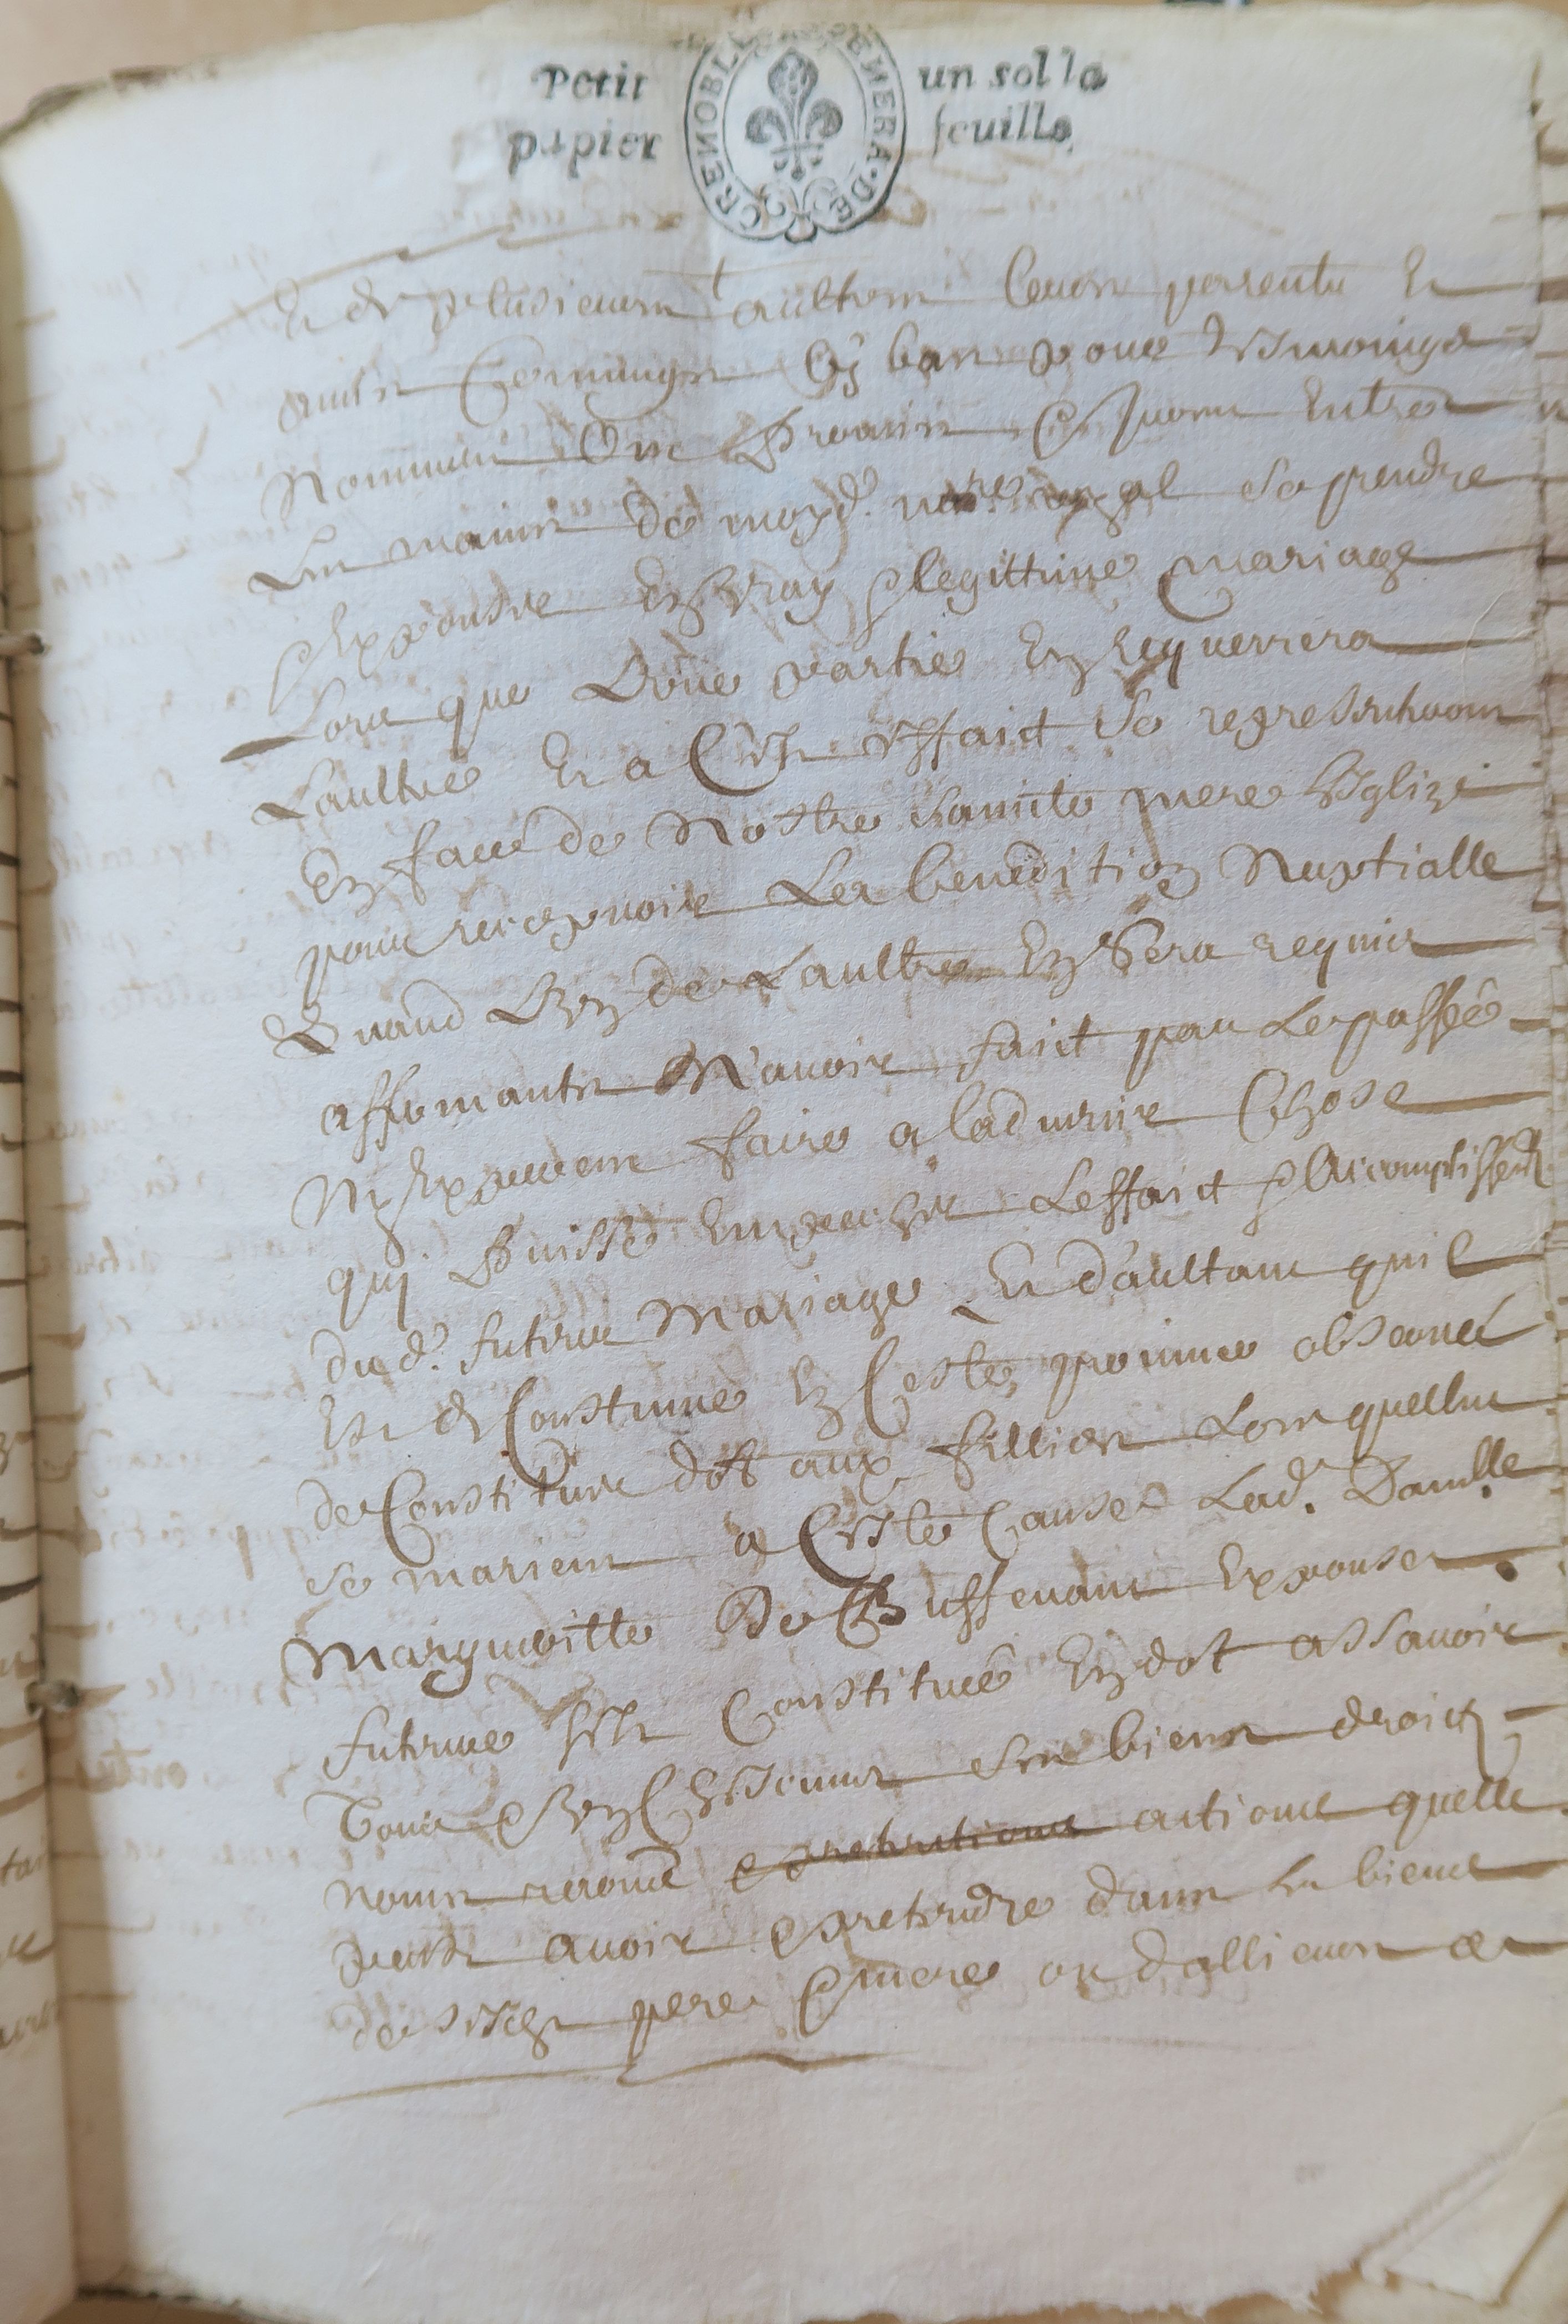 Petit papier
GRENOBLE GENERA·DE
un sol la feuille
Et de plusieurs aultres leurs parents et
amis communs cy bas pour tesmoings
nommés ont promis & juré entre
les mains de moyd. no.re royal se prendre
& expouser en vray & legittime mariage
lors que l'une partie en requerrera
l'aultre et a cest effaict se represanteront
en face de nostre saincte mere esglize
pour recepvoir la benedition nuptialle
quand l'un de l'aultre en sera requis
affirmants n'avoir faict par le passée
ny expaurent faire a ladvenir chose
qui puisse empecher l'effaict & accomplissemt
dud. futeur mariage et d'aultant quil
est de constume en ceste province observée
de constituer dot aux fillies lors quelles
se marient a ceste cause lad. Dam.lle
Margueritte De Buffevant expouse
future s'est constitué en dot assavoir
tous & un chescungs ses biens droicts
noms raons & pretentions actions quelle
peust avoir & pretendre dans les biens
de sesd. pere & mere ou d'allieurs et